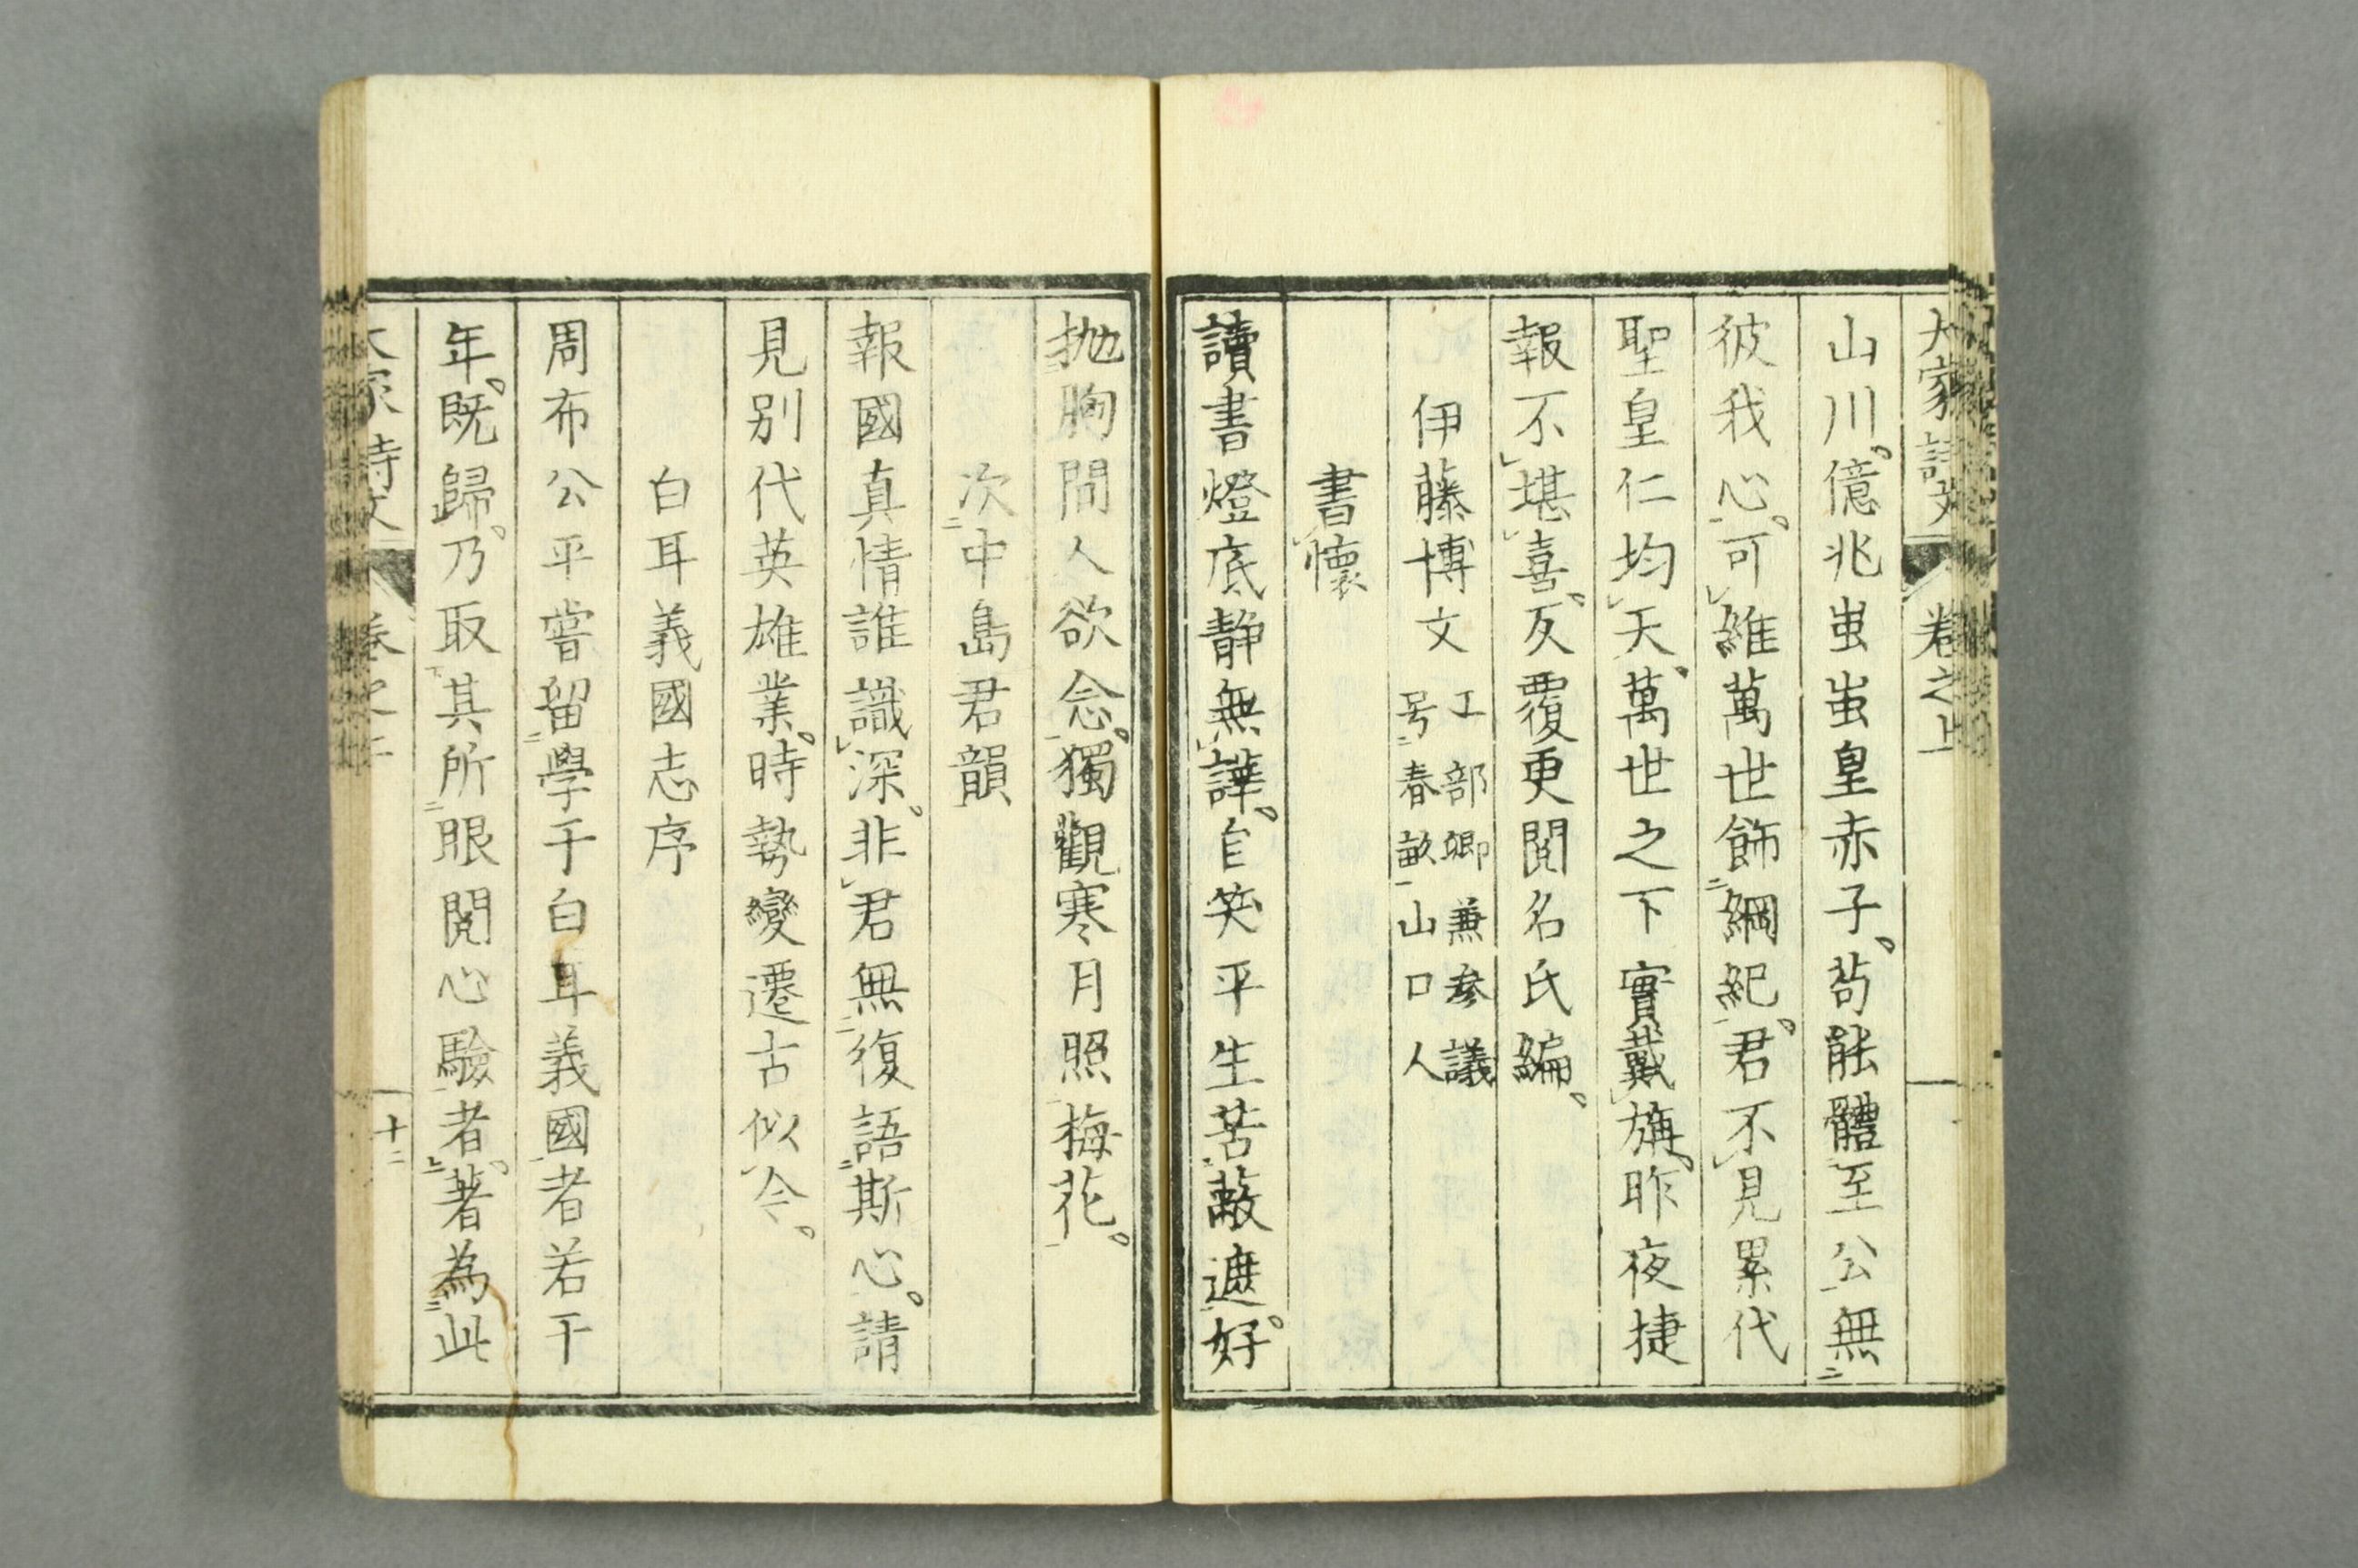 大家詩文 卷之上
山川。億兆蚩蚩皇赤子。苟能體至公無
彼我心。可維萬世飾綱紀。君不見累代
聖皇仁均天。萬世之下實戴旃。昨夜捷
報不堪喜。反覆更閱名氏編。
伊藤博文 工部卿兼参議
号春畝山口人
書懷
讀書燈底靜無譁。自笑平生苦蔽遮。好
拋胸間人欲念。獨觀寒月照梅花。
次中島君韻
報國真情誰識深。非君無復語斯心。請
見別代英雄業。時勢變遷古似今。
白耳義國志序
周布公平嘗留學于白耳義國者若干
年。既歸。乃取其所眼閱心驗者。著為此
大家詩文 卷之上 十二